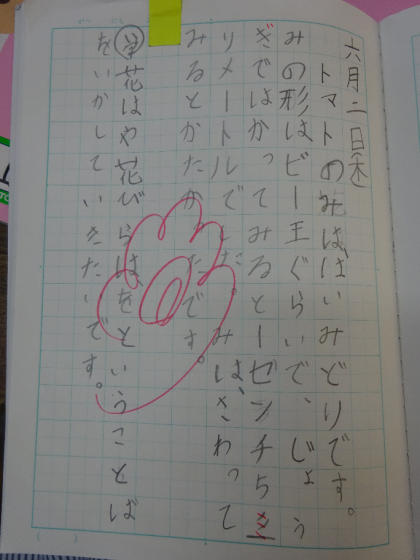 六月二日(木)
トマトのみはばいみどりです。
みの形はビー王ぐらいで、じょう
ぎではかってみると一ゼンチち
リメートルでしだ。みは、ざわって
みるとかたかたです。
学花はや花びらはをということば
をいかしていきたいです。